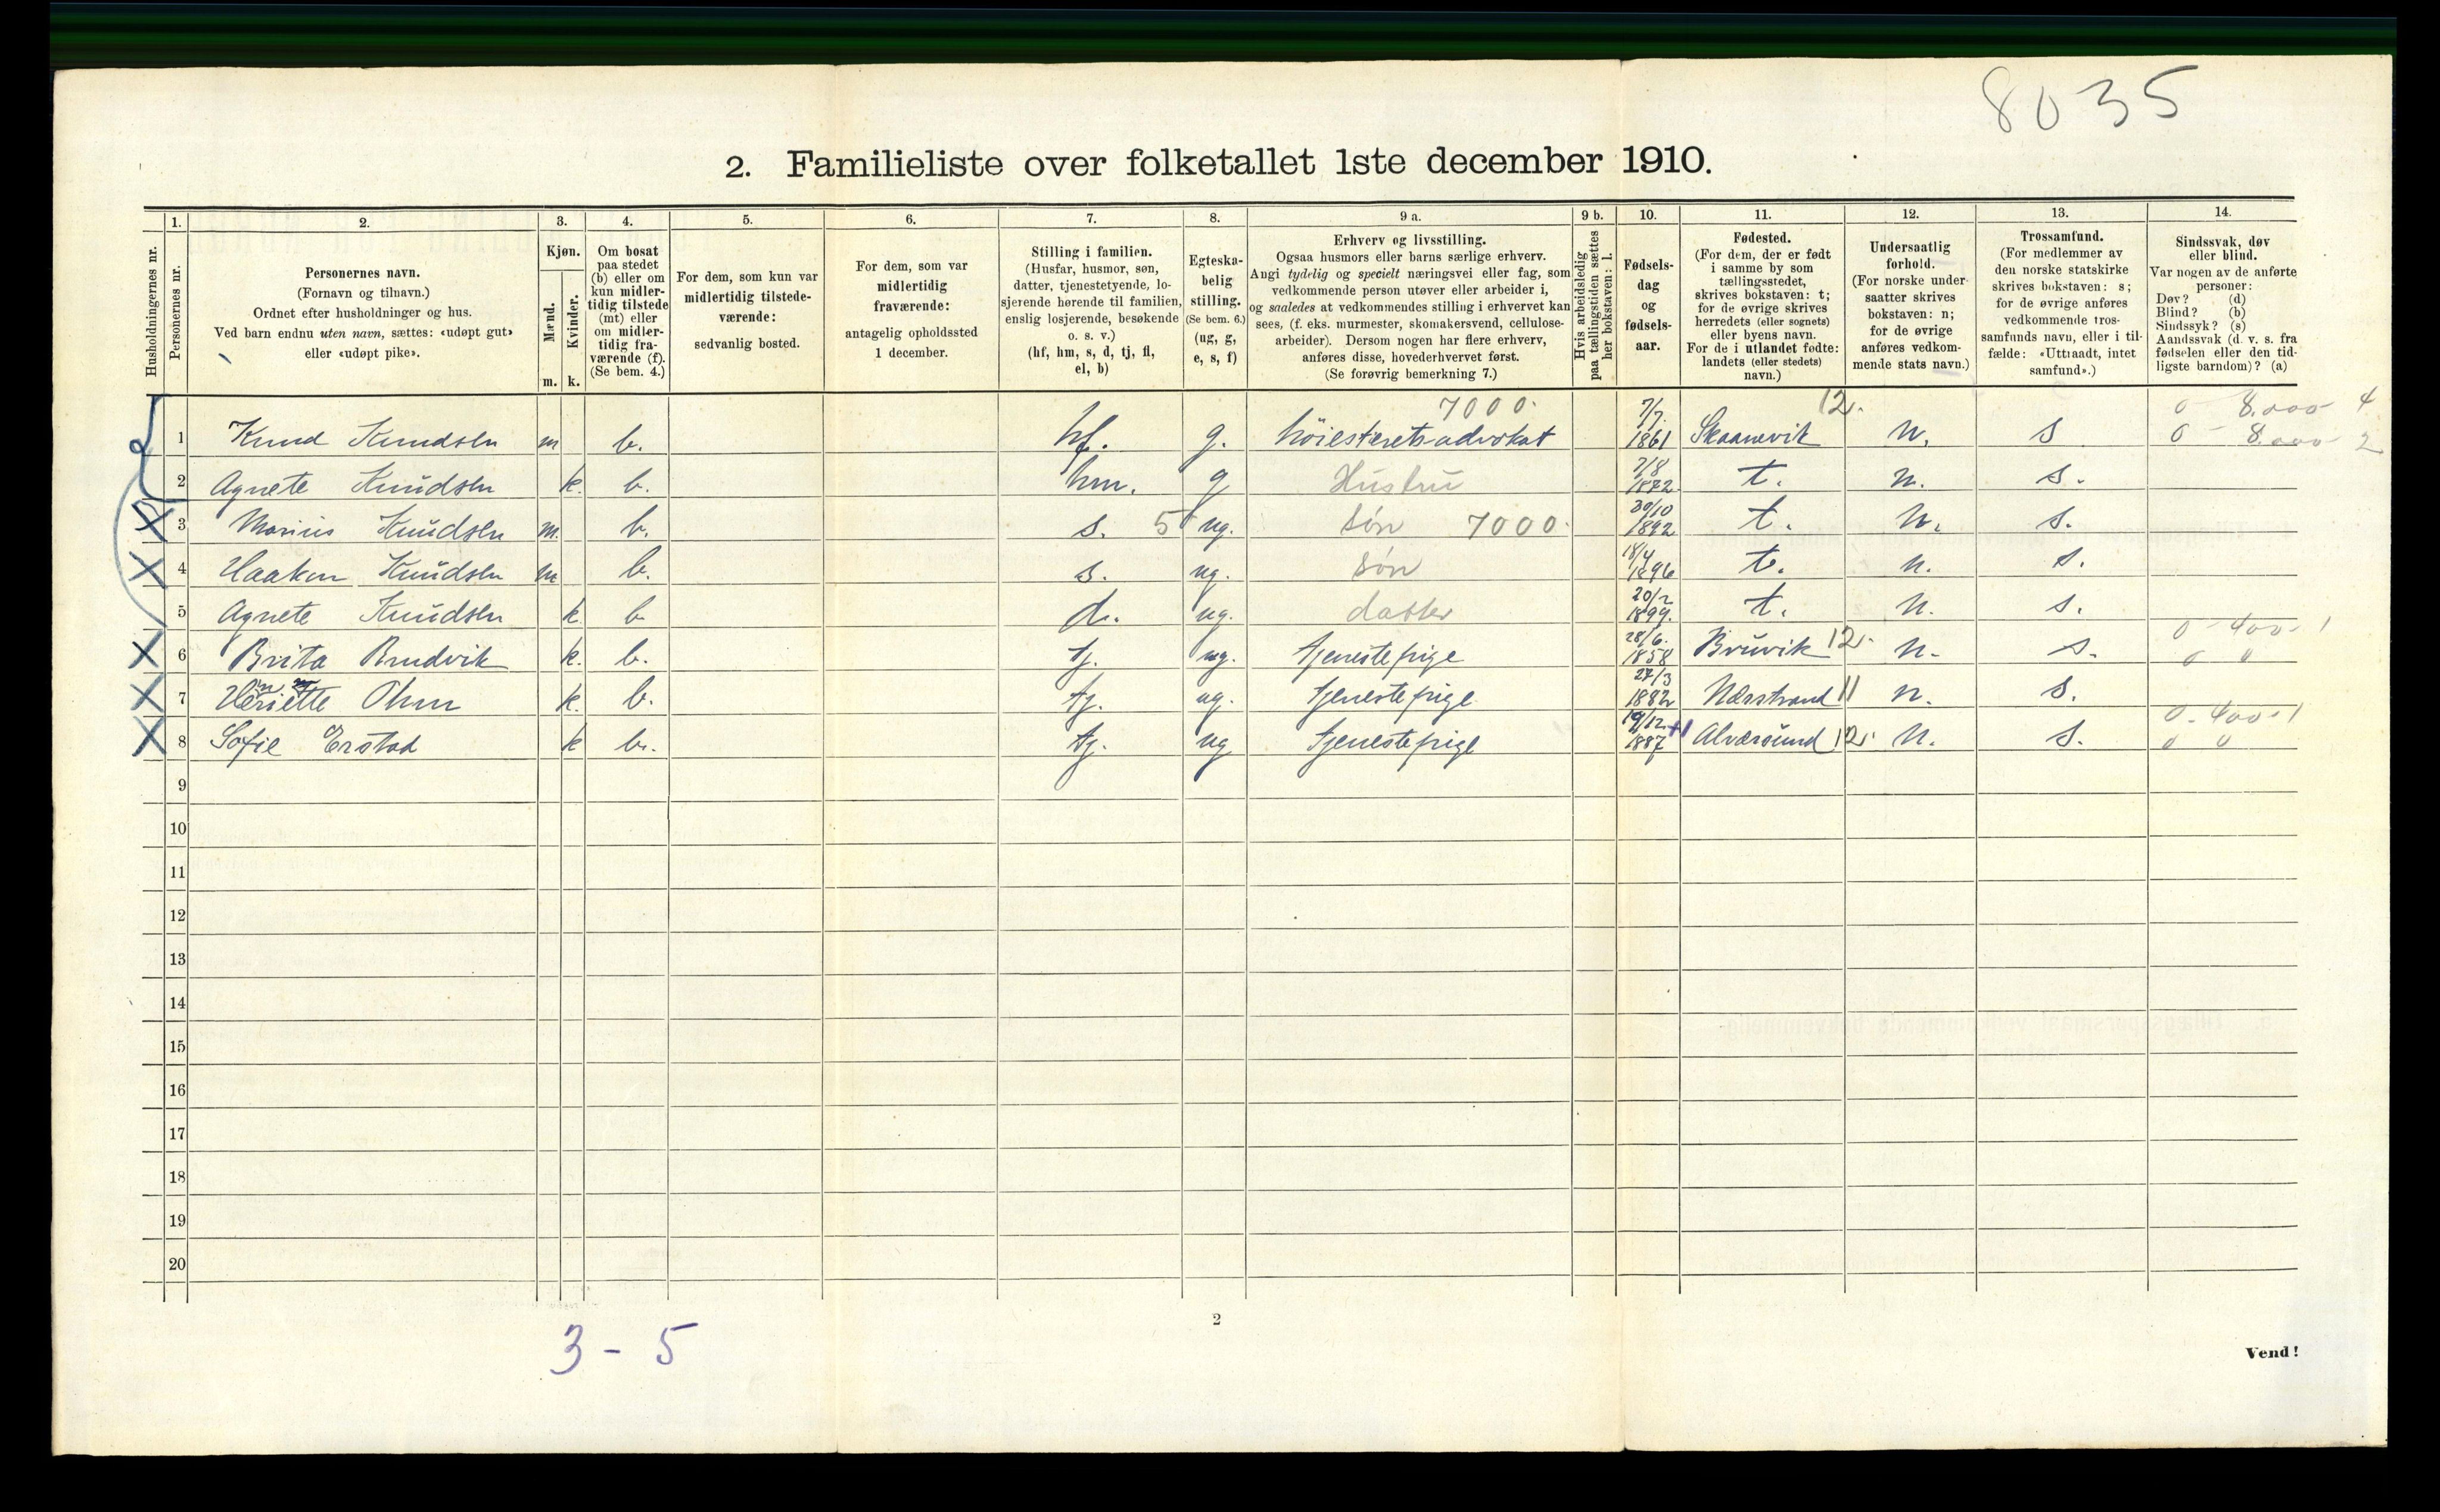 8035
2. Familieliste over folketallet 1ste december 1910.
Husholdningernes nr.
1.
Personernes nr.
2.
Personernes navn.
(Fornavn og tilnavn.)
Ordnet efter husholdninger og hus.
Ved barn endnu uten navn, sættes: «udøpt gut»
eller «udøpt pike».
3.
Kjøn.
Mænd.
Kvinder.
m. k.
4.
Om bosat
paa stedet
(b) eller om
kun midler-
tidig tilstede
(mt) eller
om midler-
tidig fra-
værende (f).
(Se bem. 4.)
5.
For dem, som kun var
midlertidig tilstede-
værende:
sedvanlig bosted.
6.
For dem, som var
midlertidig
fraværende:
antagelig opholdssted
1 december.
7.
Stilling i familien.
(Husfar, husmor, søn,
datter, tjenestetyende, lo-
sjerende hørende til familien,
enslig losjerende, besøkende
o. s. v.)
(hf, hm, s, d, tj, fl,
el, b)
8.
Egteska-
belig
stilling.
(Se bem. 6.)
(ug, g,
e, s, f)
9 a.
Erhverv og livsstilling.
Ogsaa husmors eller barns særlige erhverv.
Angi tydelig og specielt næringsvei eller fag, som
vedkommende person utøver eller arbeider i,
og saaledes at vedkommendes stilling i erhvervet kan
sees, (f. eks. murmester, skomakersvend, cellulose-
arbeider). Dersom nogen har flere erhverv,
anføres disse, hovederhvervet først.
(Se forøvrig bemerkning 7.)
9 b.
Hvis arbeidsledig
paa tællingstiden sættes
her bokstaven: l.
10.
Fødsels-
dag
og
fødsels-
aar.
11.
Fødested.
(For dem, der er født
i samme by som
tællingsstedet,
skrives bokstaven: t;
for de øvrige skrives
herredets (eller sognets)
eller byens navn.
For de i utlandet fødte:
landets (eller stedets)
navn.)
12.
Undersaatlig
forhold.
(For norske under-
saatter skrives
bokstaven: n;
for de øvrige
anføres vedkom-
mende stats navn.)
13.
Trossamfund.
(For medlemmer av
den norske statskirke
skrives bokstaven: s;
for de øvrige anføres
vedkommende tros-
samfunds navn, eller i til-
fælde: «Uttraadt, intet
samfund».)
14.
Sindssvak, døv
eller blind.
Var nogen av de anførte
personer:
Døv? (d)
Blind? (b)
Sindssyk? (s)
Aandssvak (d. v. s. fra
fødselen eller den tid-
ligste barndom)? (a)
7000. 7/7. 12. 0 - 8.000 4
1 Knud Knudsen m b. hf. g. höiesterets-advokat 1861 Skaanevik n. s 0 - 8.000 2
2 Agnete Knudsen k. b. hm. g Hustru 7/8 1872 t. n. s.
3 Marius Knudsen m. b. s. 5 ug. søn 7000. 30/10 1892 t. n. s.
4 Haakon Knudsen m b. s. ug. søn 18/4 1896 t. n. s.
5 Agnete Knudsen k. b d. ug. datter 20/2 1899. t. n. s.
6 Brita Brudvik k. b. tj. ug. tjenestepige 28/6. 1858 Bruvik 12. n. s. 0 - 400 - 1 0 0
7 Henriette Ohm k. b. tj. ug. tjenestepige 27/3 1882 Nærstrand 11 n. s.
8 Sofie Erstad k b. tj. ug tjenestepige 19/12 1887 Alvarsund 12. n. s. 0 - 400 - 1 0 0
9
10
11
12
13
14
15
16
17
18
19
20
2
3 - 5
Vend!